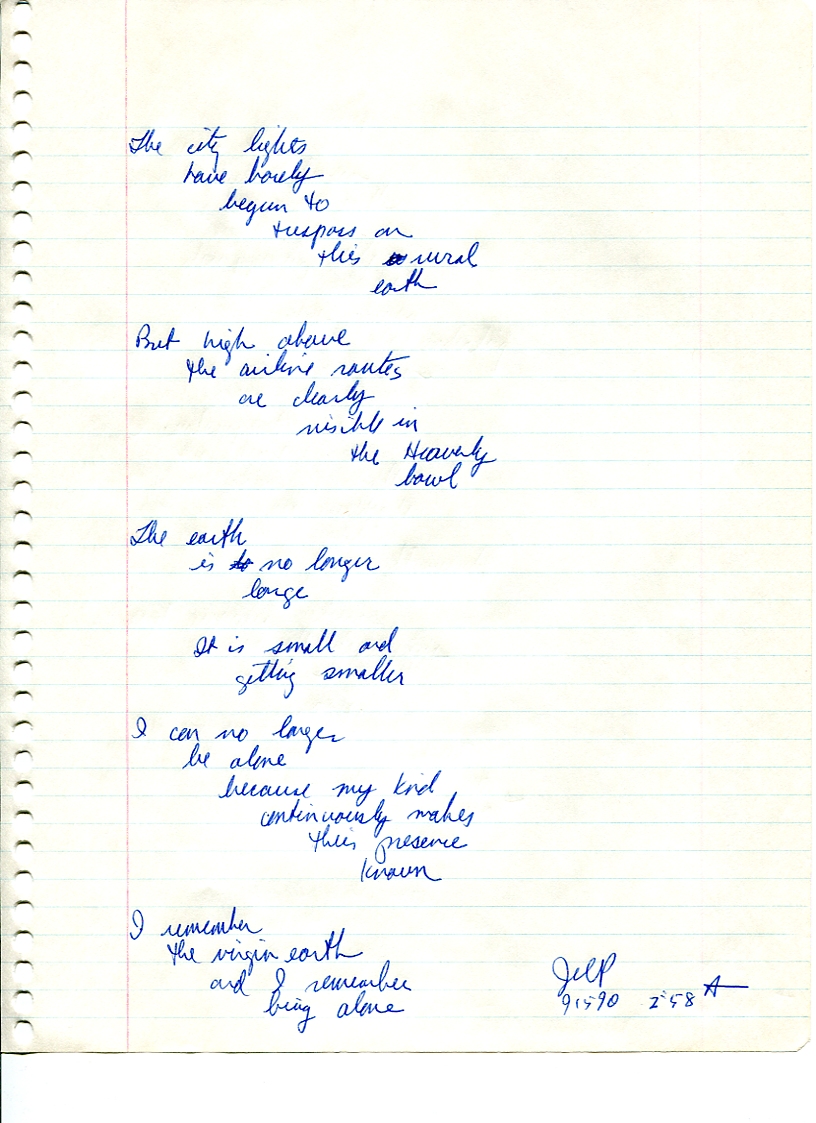 The city lights
have barely
begun to
trespass on
this rural
earth
But high above
the airline routes
are clearly
visible in
the Heavenly
bowl
The earth
is no longer
large
It is small and
getting smaller
I can no longer
be alone
because my kind
continuously makes
their presence
known
I remember
the virgin earth
and I remember
being alone
91590 2:58 A